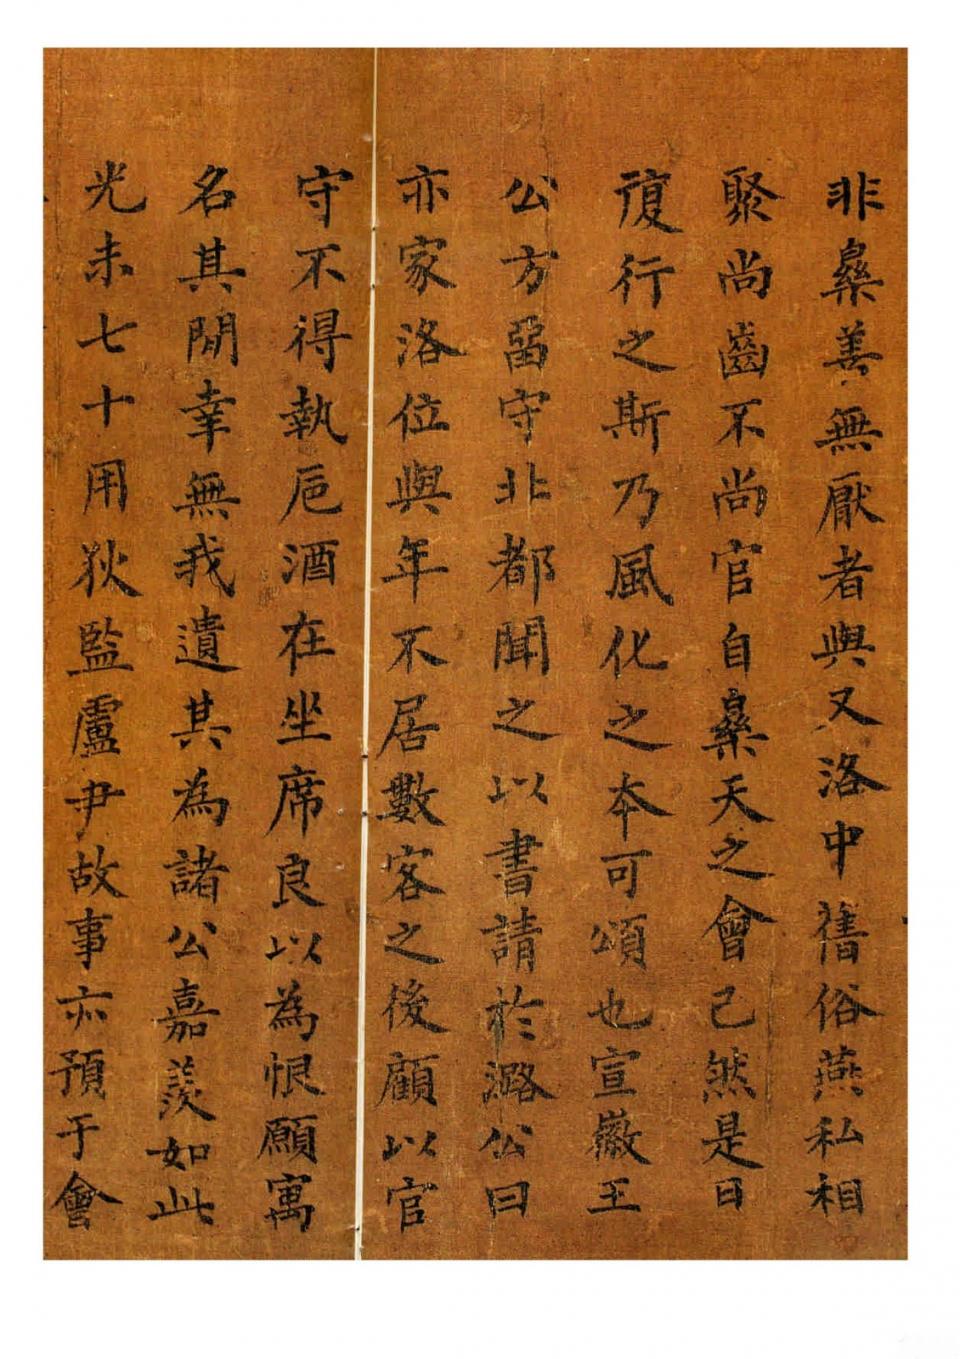 非樂善無厭者與又洛中舊俗燕私相
聚尚齒不尚官自樂天之會已然是日
復行之斯乃風化之本可頌也宣徽王
公方留守北都聞之以書請於潞公曰
亦家洛位與年不居數客之後顧以官
守不得執巵酒在坐席良以為恨願寓
名其閒幸無我遺其為諸公嘉羡如此
光未七十用狄監盧尹故事亦預于會